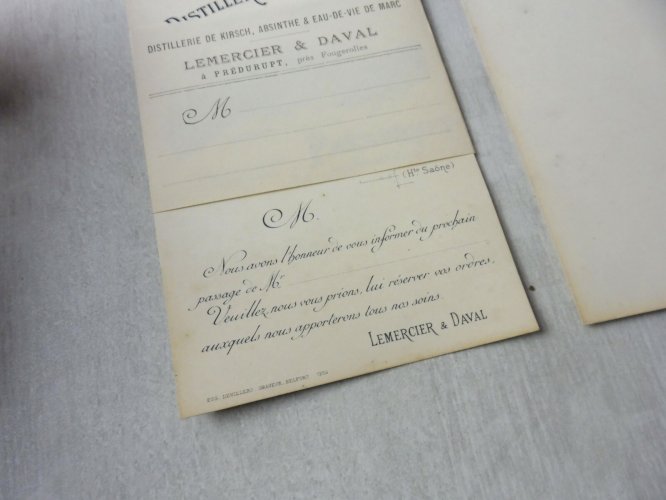 DISTILLE
DISTILLERIE DE KIRSCH, ABSINTHE & EAU-DE-VIE DE MARC
LEMERCIER & DAVAL
à PRÉDURUPT, près Fougerolles
M
(Hte Saône)
M.
Nous avons l'honneur de vous informer du prochain
passage de Mr.
Veuillez, nous vous prions, lui réserver vos ordres,
auxquels nous apporterons tous nos soins.
LEMERCIER & DAVAL
DEVILLERS, GRAVEUR, BELFORT